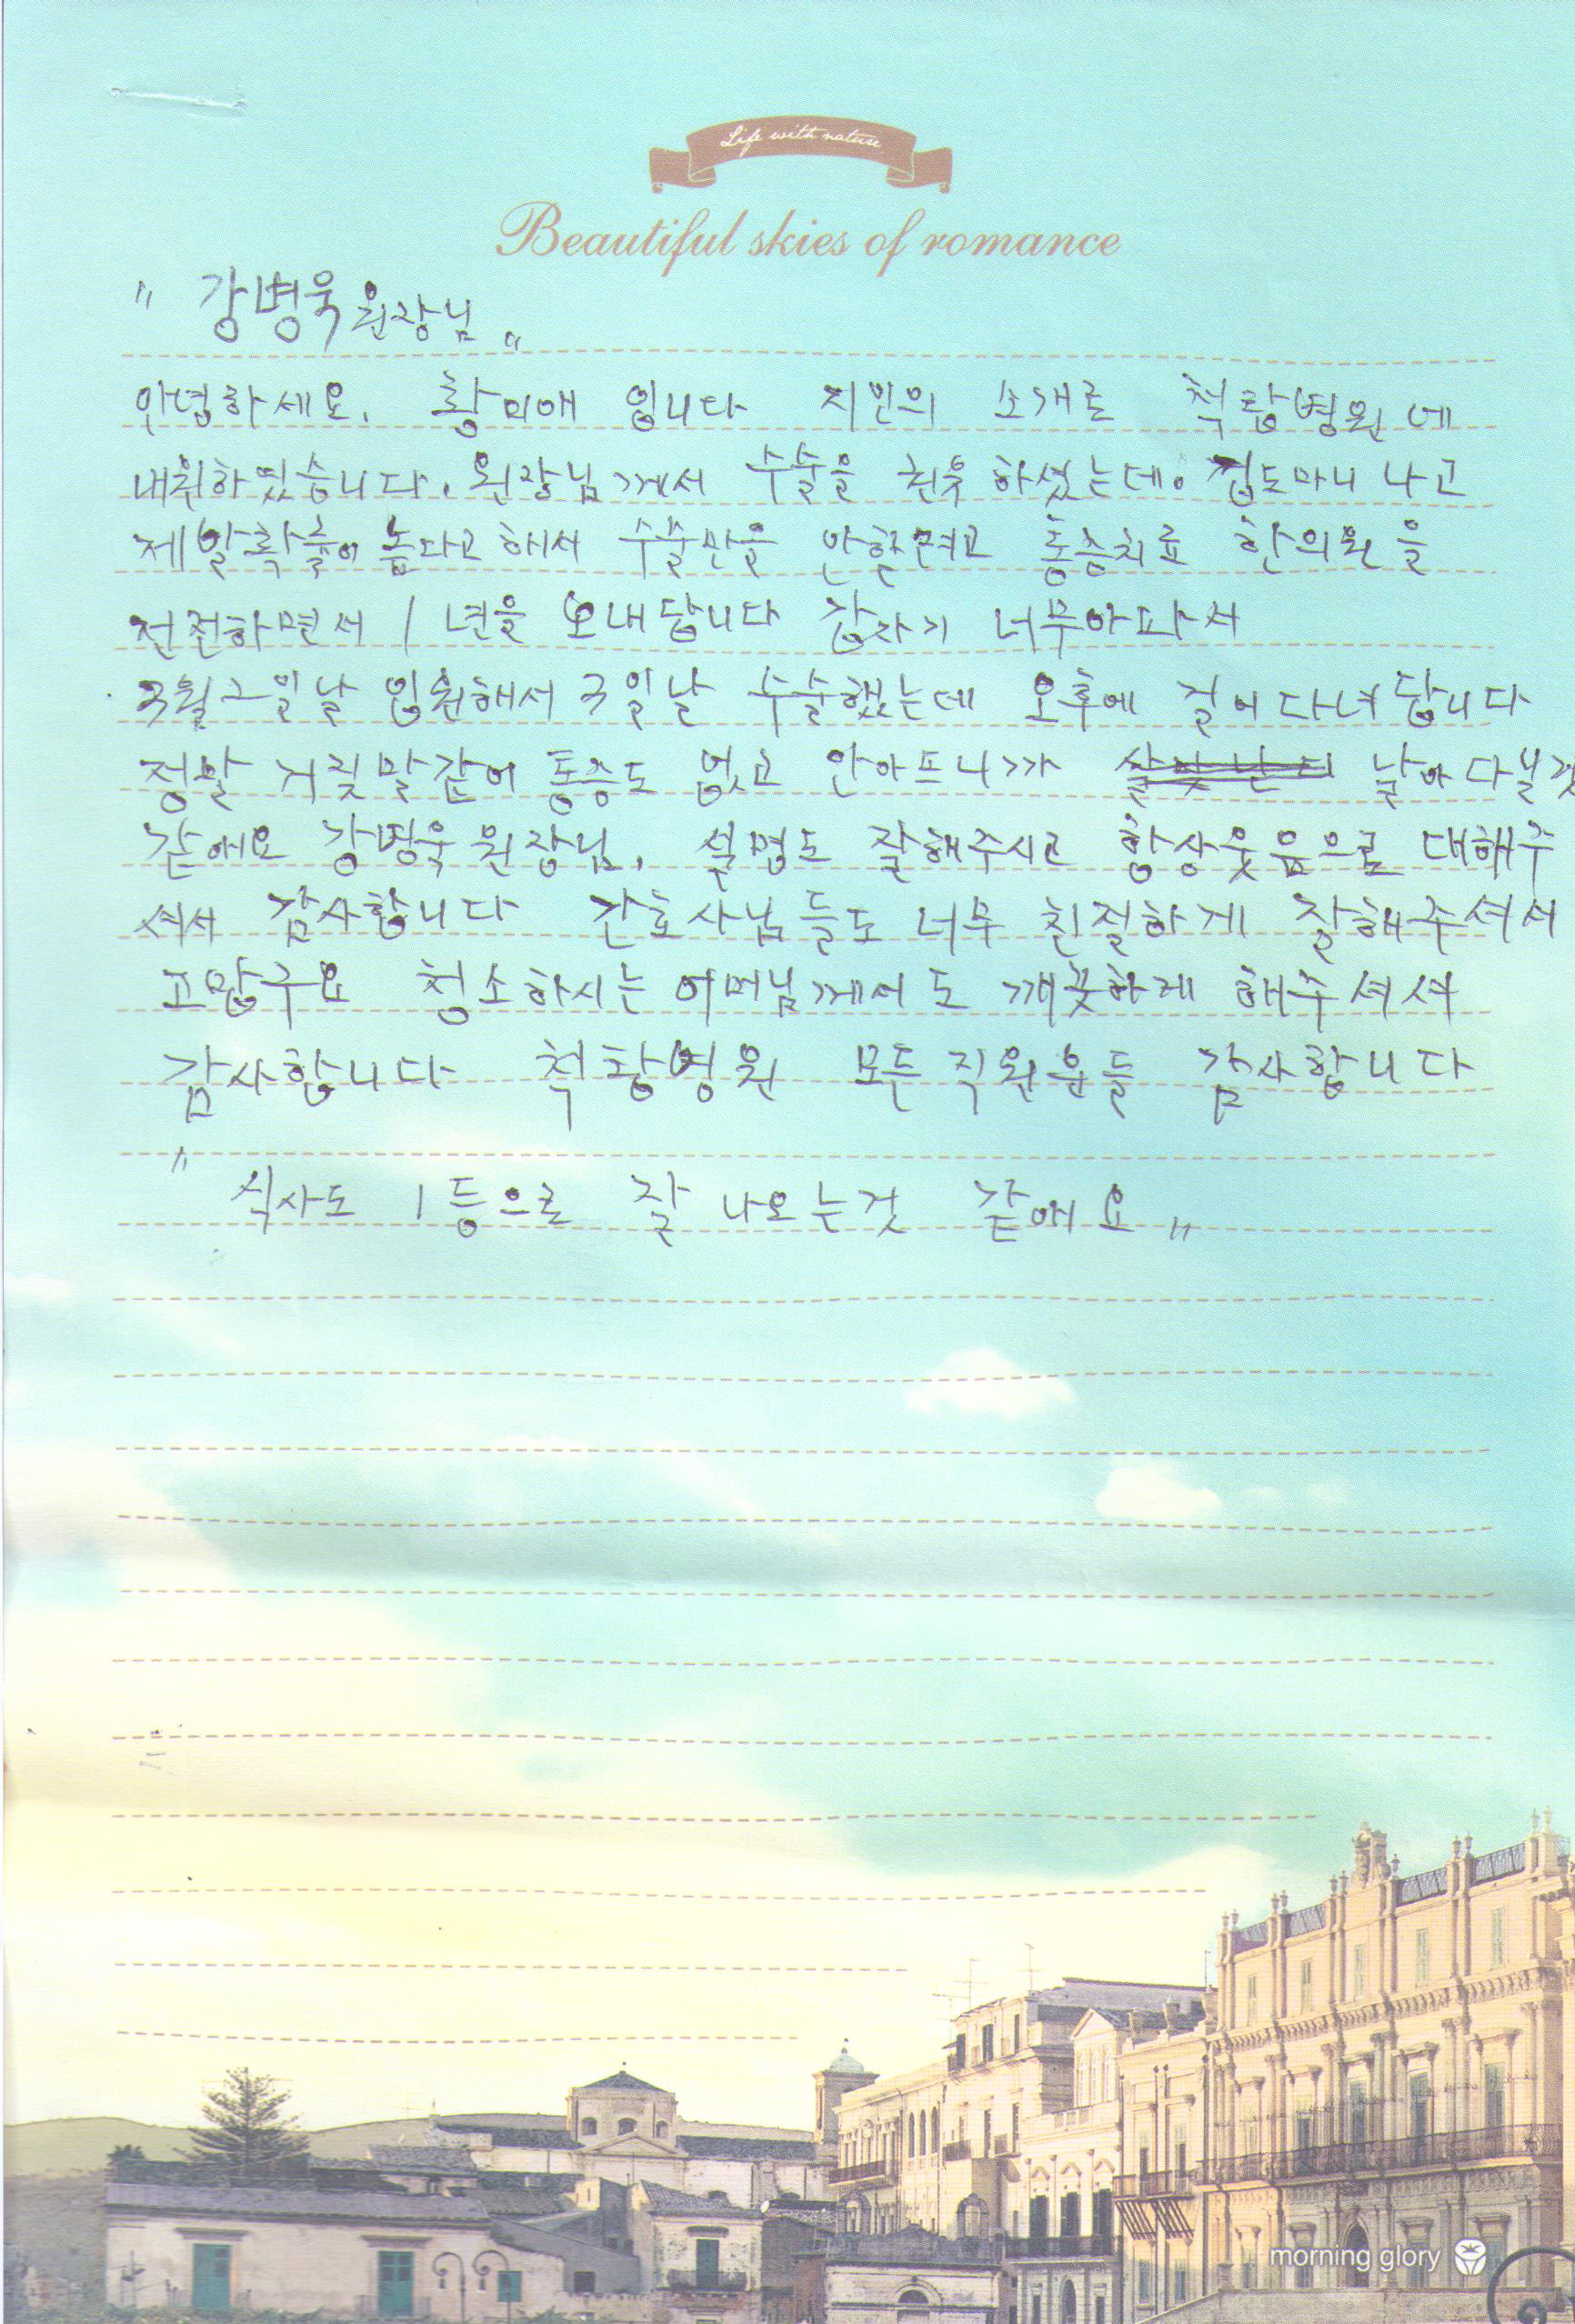 Life with nature
Beautiful skies of romance
" 강병욱 원장님 "
안녕하세요. 황미애 입니다 지인의 소개로 척탑병원에
내휘하였습니다. 원장님께서 수술을 권유 하셨는데. 겁도마니 나고
제발확률이 높다고 해서 수술만을 안할려고 통증치료 한의원을
전전하면서 1년을 보내답니다 갑자기 너무아파서
3월2일날 입원해서 3일날 수술했는데 오후에 걸어다녀답니다
정말 거짓말같이 통증도 없고 안아프니까 날아다닐것
같애요 강병욱 원장님. 설명도 잘해주시고 항상웃음으로 대해주
셔서 감사합니다 간호사님들도 너무 친절하게 잘해주셔서
고맙구요 청소하시는 어머님께서도 깨끗하게 해주셔셔
감사합니다 척탑병원 모든직원분들 감사합니다
" 식사도 1등으로 잘 나오는것 같애요 "
morning glory